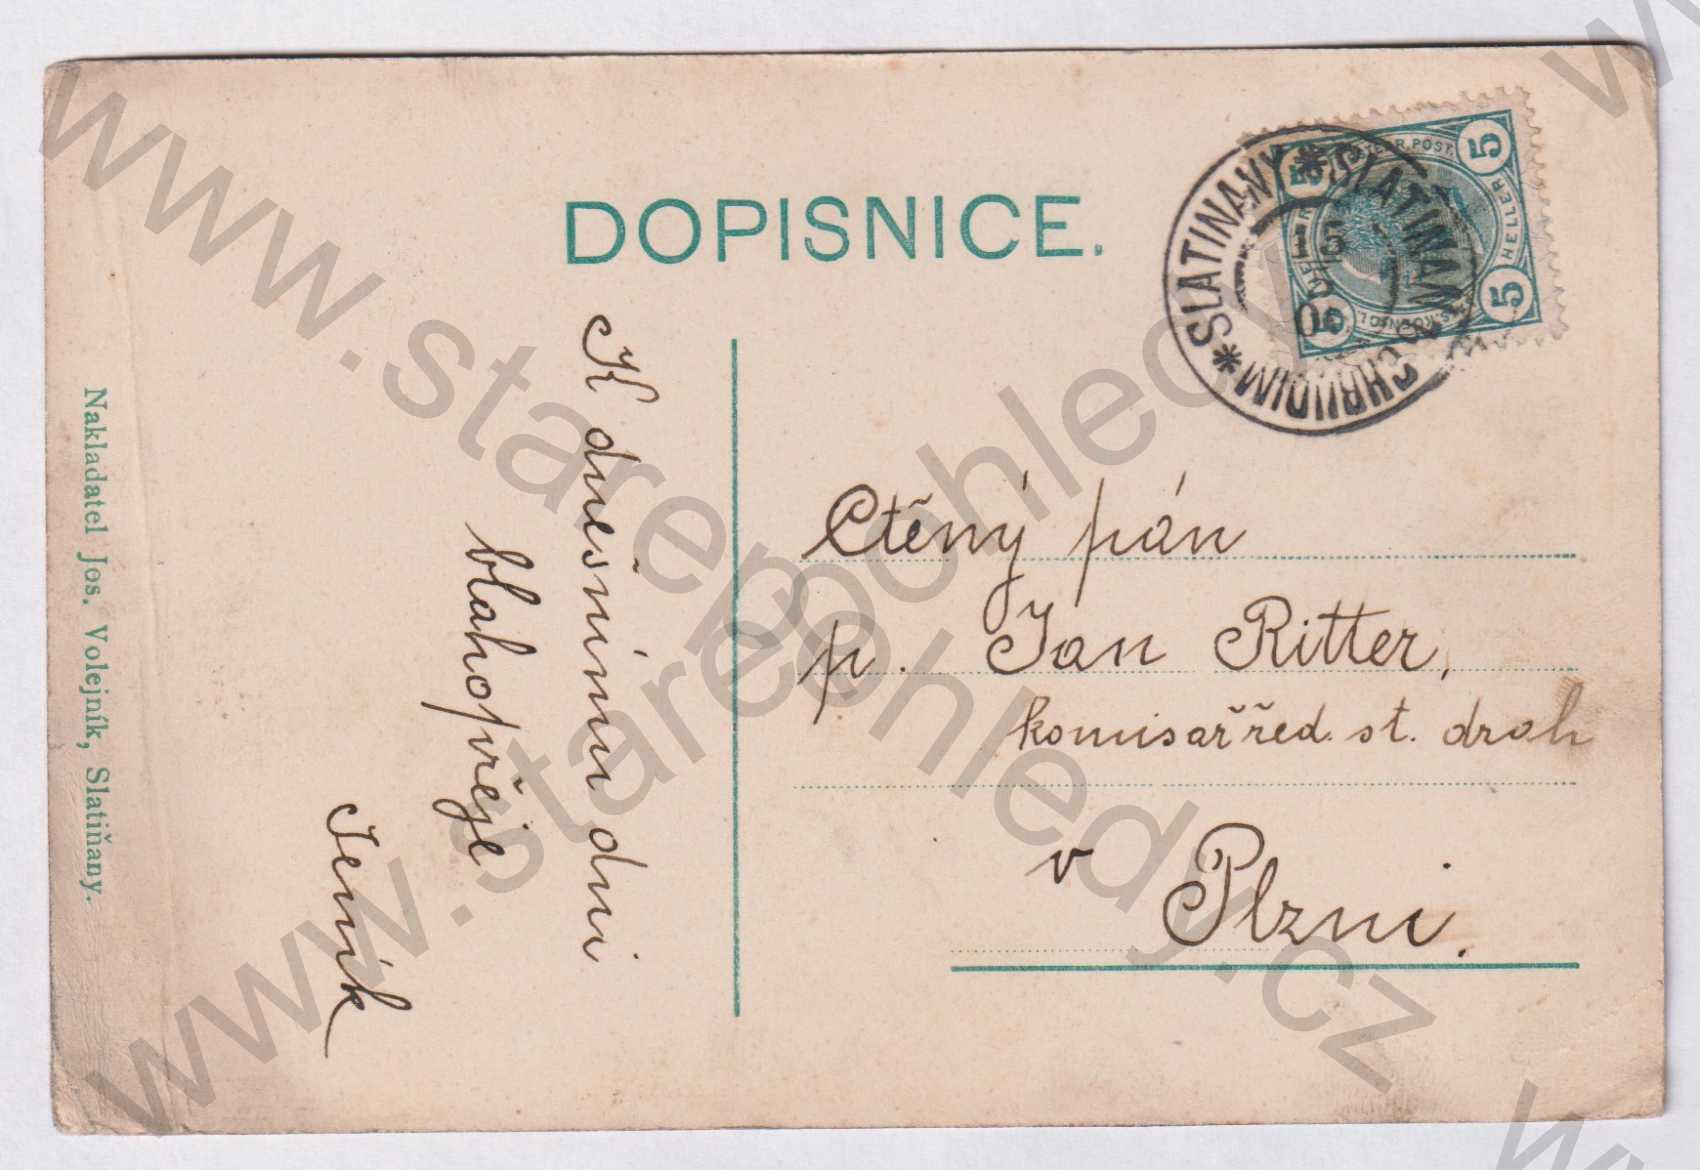 DOPISNICE.
K dnešnímu dni
blahopřeje
Jeník
Nakladatel Jos. Volejník, Slatiňany.
SLATINAN * SLATINANY * CHRUDIM
15
5 HELLER 5
Ctěný pán
p. Jan Ritter,
komisař řed. st. drah
v Plzni.
www.starepohledy.cz
www.starepohledy.cz